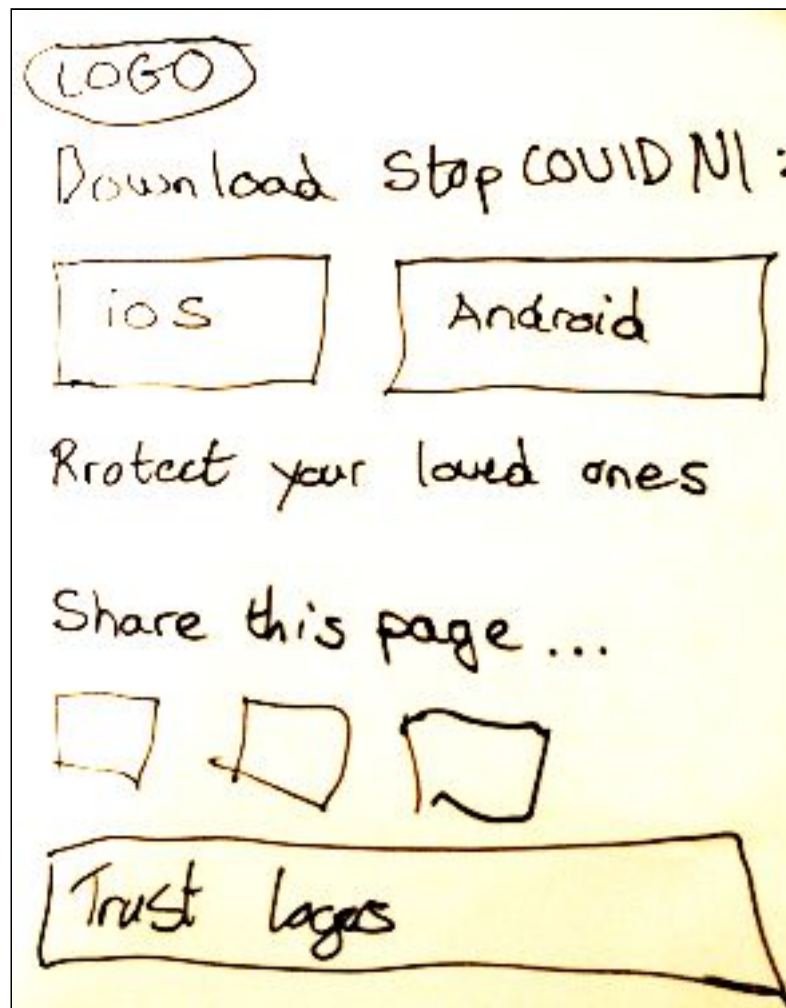 LOGO
Download Stop COVID NI :
iOS Android
Protect your loved ones
Share this page ...
Trust logos